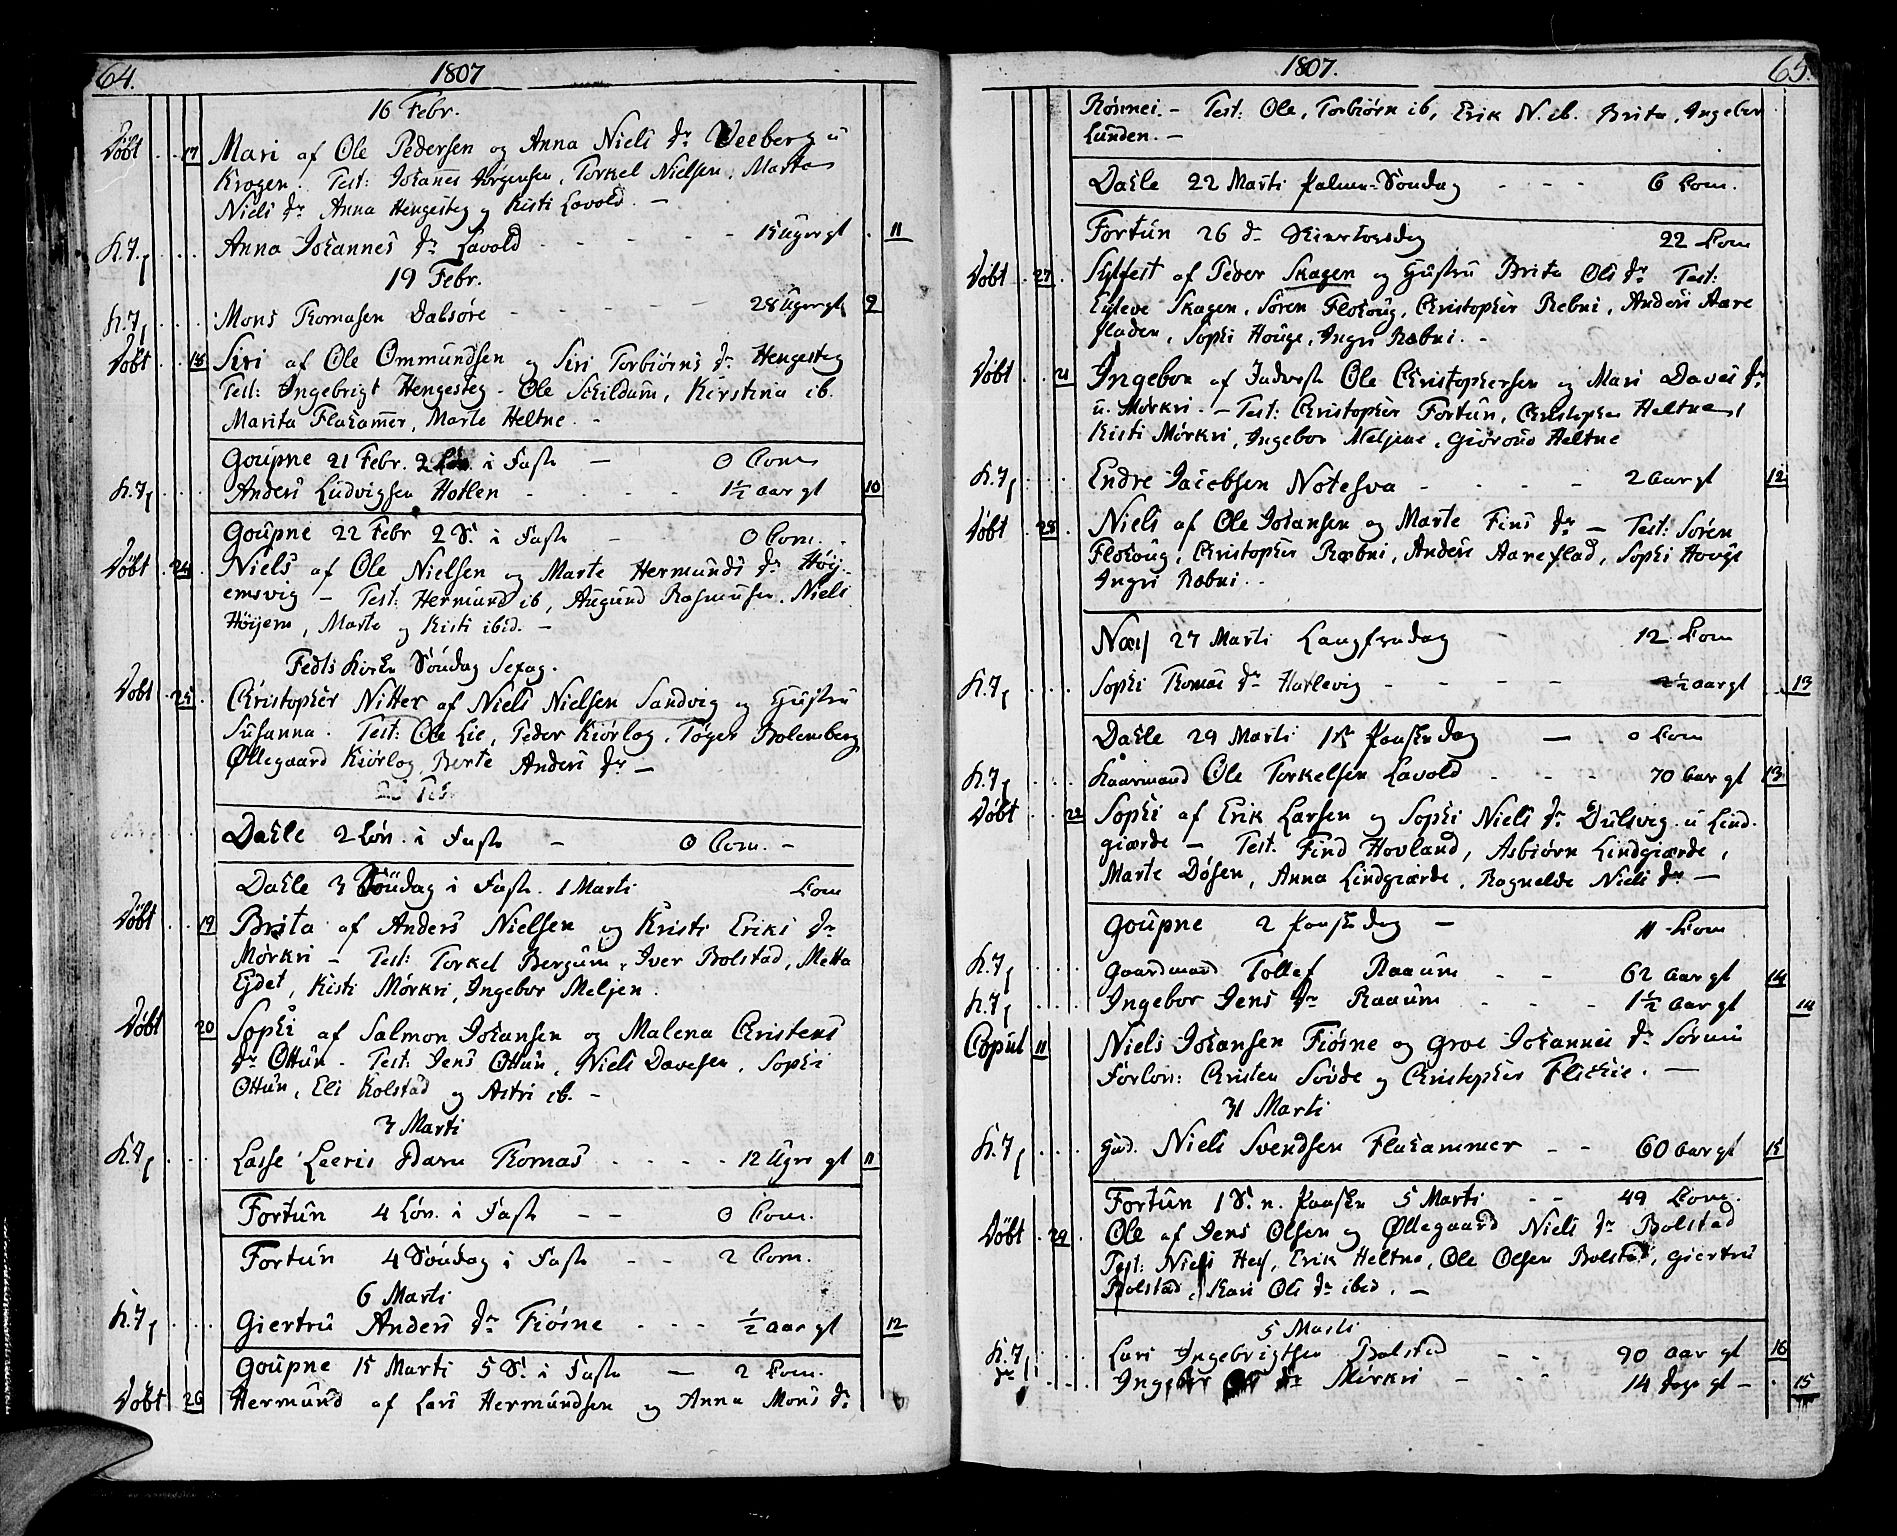 64. 1807
16 Febr.
Döbt 17 Mari af Ole Pedersen og Anna Niels dr Veeberg u
Krogen. Test: Johannes Jörgensen, Torkel Nielsen, Marta
Niels dr Anna Hengesteg og Kisti Lavold. —
K.J. Anna Johannes dr Lavold - - - 15 Uger gl 11
19 Febr.
K.J. Mons Thomasen Dalsöre - - - 28 Uger gl 9
Döbt 18 Siri af Ole Ommundsen og Siri Torbiörns dr Hengesteg
Test: Ingebrigt Hengesteg - Ole Schildum, Kirstina ib.
Marita Flahamer, Marte Heltne. -
Goupne 21 Febr. 2 Löv. i Fast — 0 Com
K.J. Anders Ludvigsen Hotlen - - - 1½ aar gl 10
Goupne 22 Febr 2 S. i Fast - 0 Com. -
Döbt 24 Niels af Ole Nielsen og Marte Hermunds dr Höy-
emsvig — Test: Hermund ib, Augund Rasmusen, Niels
Höyem, Marte og Kisti ibid. —
Fedts Kirke Söndag Sexag.
Döbt 25 Christopher Nitter af Niels Nielsen Sandvig og Hustru
Susanna. Test: Ole Lie, Peder Kiörlog, Töger Bolensberg
Øllegaard Kiörlog Berte Anders dr —
Dahle 2 Löv. i Fast - 0 Com. -
Dahle 3 Söndag i Fast. 1 Marti Com
Döbt 19 Brita af Anders Nielsen og Kristi Eriks dr
Mörkri — Test: Torkel Bergum, Iver Bolstad, Metta
Ejdet, Kisti Mörkri, Ingebor Meljen.
Döbt 20 Sophi af Salmon Johansen og Malena Christens
dr Ottun - Test: Jens Ottun, Niels Davesen, Sophi
Ottun, Eli Kolstad og Astri ib. -
3 Marti
K.J. Lasse Leeris Barn Thomas - - - 12 Ugers gl 11
Fortun 4 Löv. i Fast - - 0 Com.
Fortun 4 Söndag i Fast - - 2 Com.
6 Marti
K.J. Giertru Anders dr Fiösne - - - ½ aar gl 12
Goupne 15 Marti 5 S. i Fast — 2 Com.
Döbt 26 Hermund af Lars Hermundsen og Anna Mons dr
1807. 65.
Rönnei. - Test: Ole, Torbiörn ib, Erik N. ib. Brita, Ingebor
Lunden. -
Dahle 22 Marti Palme-Söndag - - - 6 Com.
Fortun 26 dr Skiertorsdag 22 Com
Döbt 27 Sylfest af Peder Skagen og Hustru Brita Ols dr Test:
Eyleve Skagen, Sören Flohoug, Christopher Rebni, Anders Aare
fladen, Sophi Houge, Ingri Rebni. -
Döbt 21 Ingebor af Inderst Ole Christophersen og Mari Daves dr
u. Mörkri. - Test: Christopher Fortun, Christopher Heltne,
Kisti Mörkri, Ingebor Meljene, Giöroud Heltne
K.J. Endre Jacobsen Notesva - - - 2 aar gl 12
Döbt 28 Niels af Ole Johansen og Marte Fins dr — Test: Sören
Flohoug, Christopher Ræbni, Anders Aareflad, Sophi Hovge
Ingri Ræbni. -
Næs 27 Marti Langfredag - 12 Com
K.J. Sophi Thomas dr Harlevig - - - 2½ aar gl 13
Dahle 29 Marti 1st Paaskedag — 0 Com
K.J. Kaarmand Ole Torkelsen Lavold - - - 70 aar gl 13
Döbt 22 Sophi af Erik Larsen og Sophi Niels dr Dulsvig u Lind-
giærde — Test. Find Hovland, Asbiörn Lindgiærde,
Marte Dösen, Anna Lindgiærde, Ragnelde Niels dr —
Goupne 2 Paaskedag — 11 Com
K.J. Gaardmand Tollef Raaum - - 62 aar gl 14
K.J. Ingebor Jens dr Raaum - - - 1½ aar gl 14
Copul 11 Niels Johansen Fiösne og Groe Johannes dr Sörum
Forlov: Christen Sövde og Christopher Flohoug. —
31 Marti
K.J. Gud. Niels Svendsen Flahammer - - 60 aar gl 15
Fortun 1 S. n. Paaske 5 Marti - - 49 Com.
Döbt 29 Ole af Jens Olsen og Øllegaard Niels dr Bolstad
Test: Niels Hes, Erik Heltne, Ole Olsen Bolstad, Giertru
Bolstad, Kari Ols dr ibid. —
5 Marti
K.J. Lars Ingebrigtsen Bolstad - - 90 aar gl 16
dr Ingebor dr Mörkri - - - 14 dage gl - 15